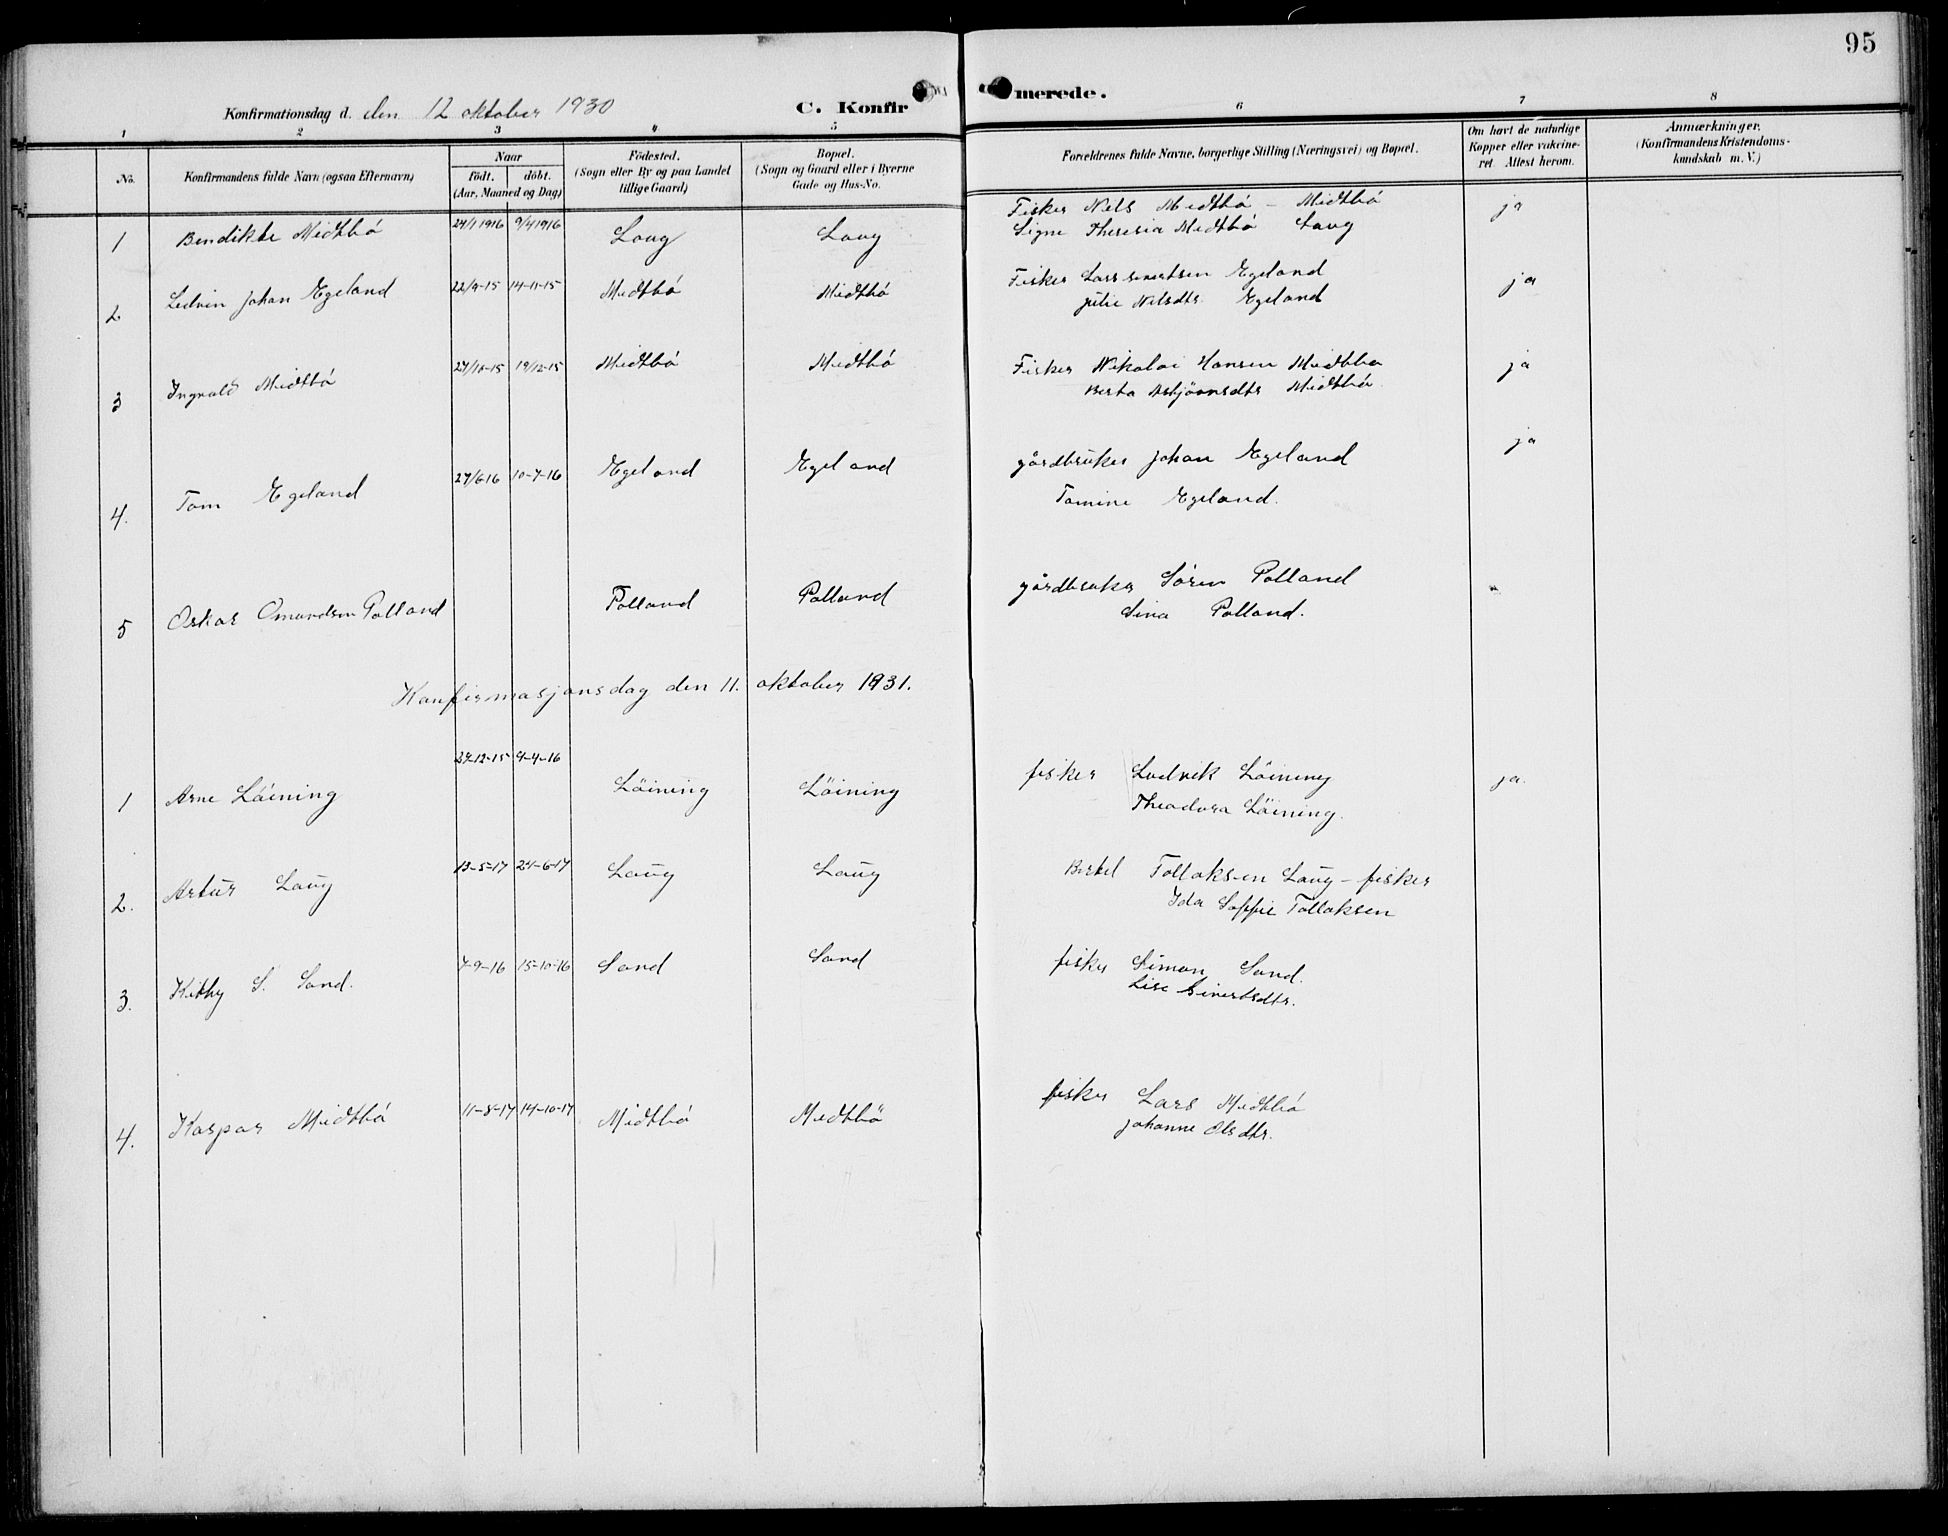 95
Konfirmationsdag d. den 12 oktober 1930
C. Konfirmerede.
1 2 3 4 5 6 7 8
No.
Konfirmandens fulde Navn (ogsaa Efternavn)
Naar
födt. döbt.
(Aar, Maaned og Dag)
Födested.
(Sogn eller By og paa Landet
tillige Gaard)
Bopæl.
(Sogn og Gaard eller i Byerne
Gade og Hus-No.
Forældrenes fulde Navne, borgerlige Stilling (Næringsvei) og Bopæl.
Om havt de naturlige
Kopper eller vakcine-
ret. Attest herom.
Anmærkninger.
(Konfirmandens Kristendoms-
kundskab m. V.)
1 Bendikte Midtbö 24/1 1916 9/4 1916 Laug Laug Fisker Nils Midtbö - Midtbö ja
Signe Theresia Midtbö Laug
2 Ledvin Johan Egeland 22/9-15 14-11-15 Midtbö Midtbö Fisker Lars Sivertsen Egeland ja
Julie Nilsdtr. Egeland
3 Ingvald Midtbö 19/12-15 Midtbö Midtbö Fisker Nikolai Hansen Midtbö ja
Berta Asbjörnsdtr Midtbö.
4. Tom Egeland 27/6 16 10-7-16 Egeland Egeland gårdbruker Johan Egeland ja
Tomine Egeland.
5 Oskar Omundsen Polland Polland Polland gårdbruker Sören Polland
Sina Polland.
Konfirmasjonsdag den 11. oktober 1931.
1 Arne Löining 9-4-16 Löining Löining fisker Ludvik Löining ja.
Theodora Löining.
2. Artur Laug 13-5-17 24-6-17 Laug Laug Bertel Tollaksen Laug - fisker
Ida Soffie Tollaksen
3. Kithy S. Sand. 7-9-16 15-10-16 Sand Sand fisker Simon Sand.
Lise Sivertsdtr.
4. Kaspar Midtbö 11-8-17 14-10-17 Midtbö Midtbö fisker Lars Midtbö
Johanne Olsdtr.